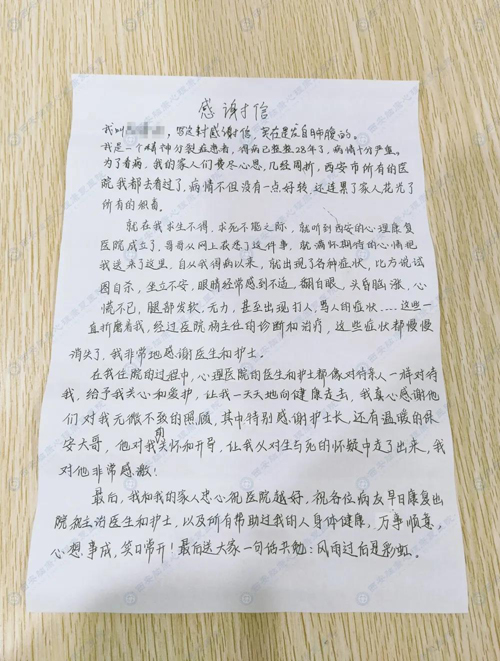 感谢信
我叫，写这封感谢信，实在是发自肺腑的。
我是一个精神分裂症患者，得病已整整28年了，病情十分严重。
为了看病，我的家人们费尽心思，几经周折，西安市所有的医
院我都去看过了，病情不但没有一点好转，还连累了家人花光了
所有的积蓄。
就在我求生不得，求死不能之际，就听到西安的心理康复
医院成立了，哥哥从网上获悉了这件事，就满怀期待的心情把
我送来了这里，自从我得病以来，就出现了各种症状，比方说试
图自杀，坐立不安，眼睛经常感到不适，翻白眼，头昏脑涨，心
慌不已，腿部发软，无力，甚至出现打人，骂人的症状……这些一
直折磨着我，经过医院杨主任的诊断和治疗，这些症状都慢慢
消失了，我非常地感谢医生和护士。
在我住院的过程中，心理医院的医生和护士都像对待亲人一样对待
我，给予我关心和爱护，让我一天天地向健康走去，我真心感谢他
们对我无微不致的照顾，其中特别感谢护士长，还有温暖的保
安大哥，他对我的关怀和开导，让我从对生与死的怀疑中走了出来，我
对他非常感激！
最后，我和我的家人忠心祝医院越好，祝各位病友早日康复出
院祝主治医生和护士，以及所有帮助过我的人身体健康，万事顺意，
心想事成，笑口常开！最后送大家一句话共勉：风雨过后是彩虹。